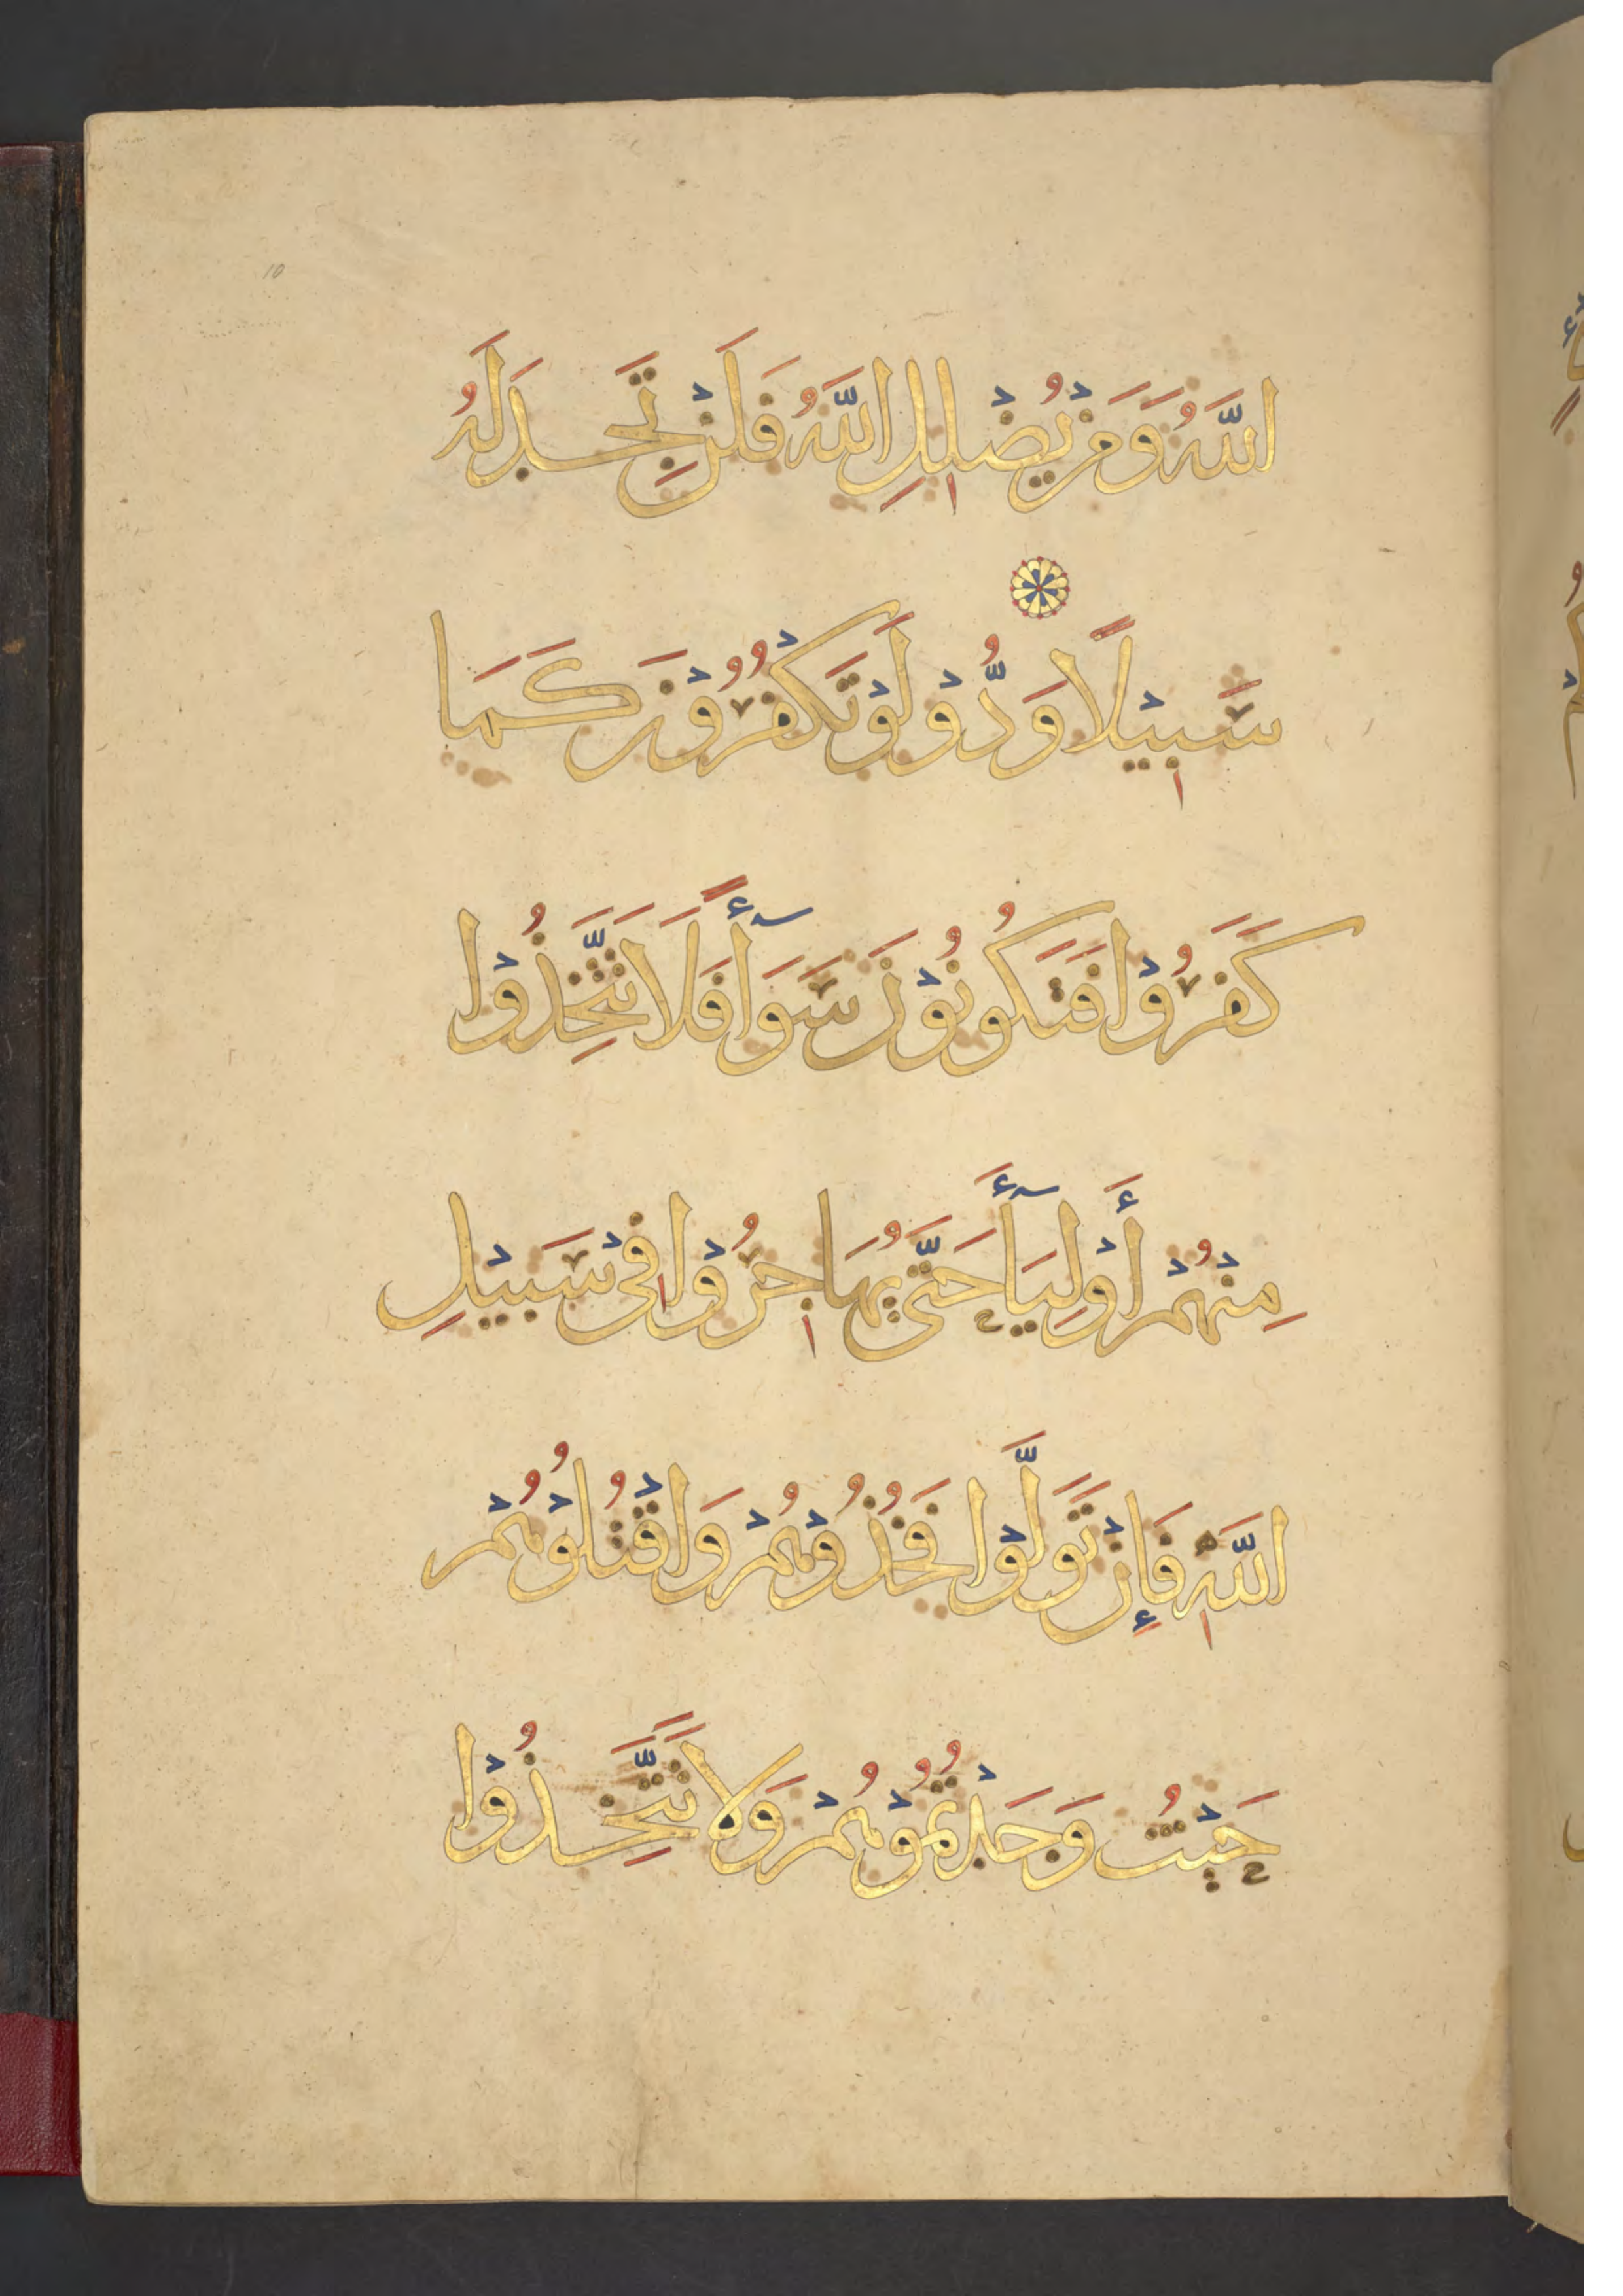 اللَّهُ وَمَنْ يُضْلِلِ اللَّهُ فَلَنْ تَجِدَ لَهُ
سَبِيْلًا وَدُّوْ لَوْ تَكْفُرُوْنَ كَمَا
كَفَرُوْا فَتَكُونُوْنَ سَوَآأً فَلَا تَتَّخِذُوْا
مِنْهُمْ أَوْلِيَآأَ حَتَّى يُهَاجِرُوْا فِيْ سَبِيْلِ
اللَّهِ فَإِنْ تَوَلَّوْا فَخُذُوْهُمْ وَاقْتُلُوْهُمْ
حَيْثُ وَجَدْتُمُوْهُمْ وَلَا تَتَّخِذُوْا
10